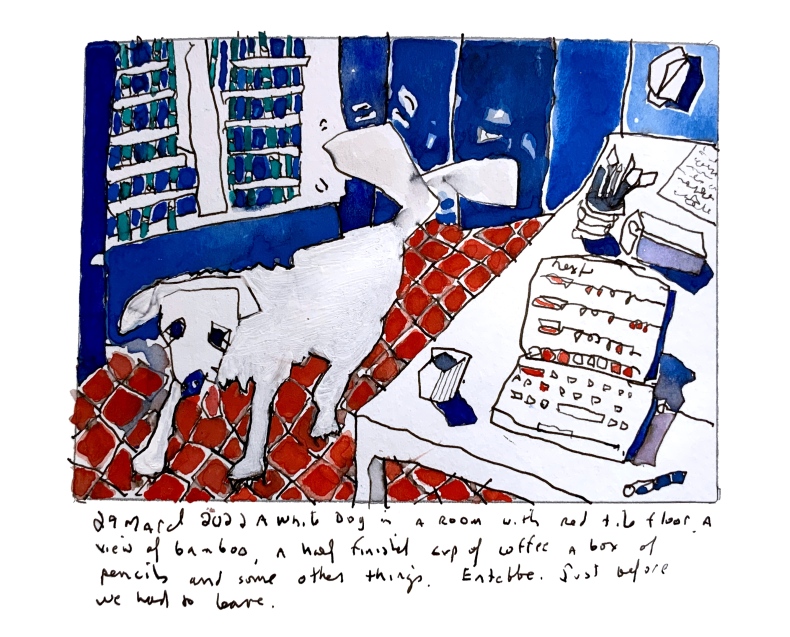 next
29 March 2022 A white Dog in a room with red tile floor. A
view of bamboo, a half finished cup of coffee a box of
pencils and some other things. Entebbe. Just before
we had to leave.